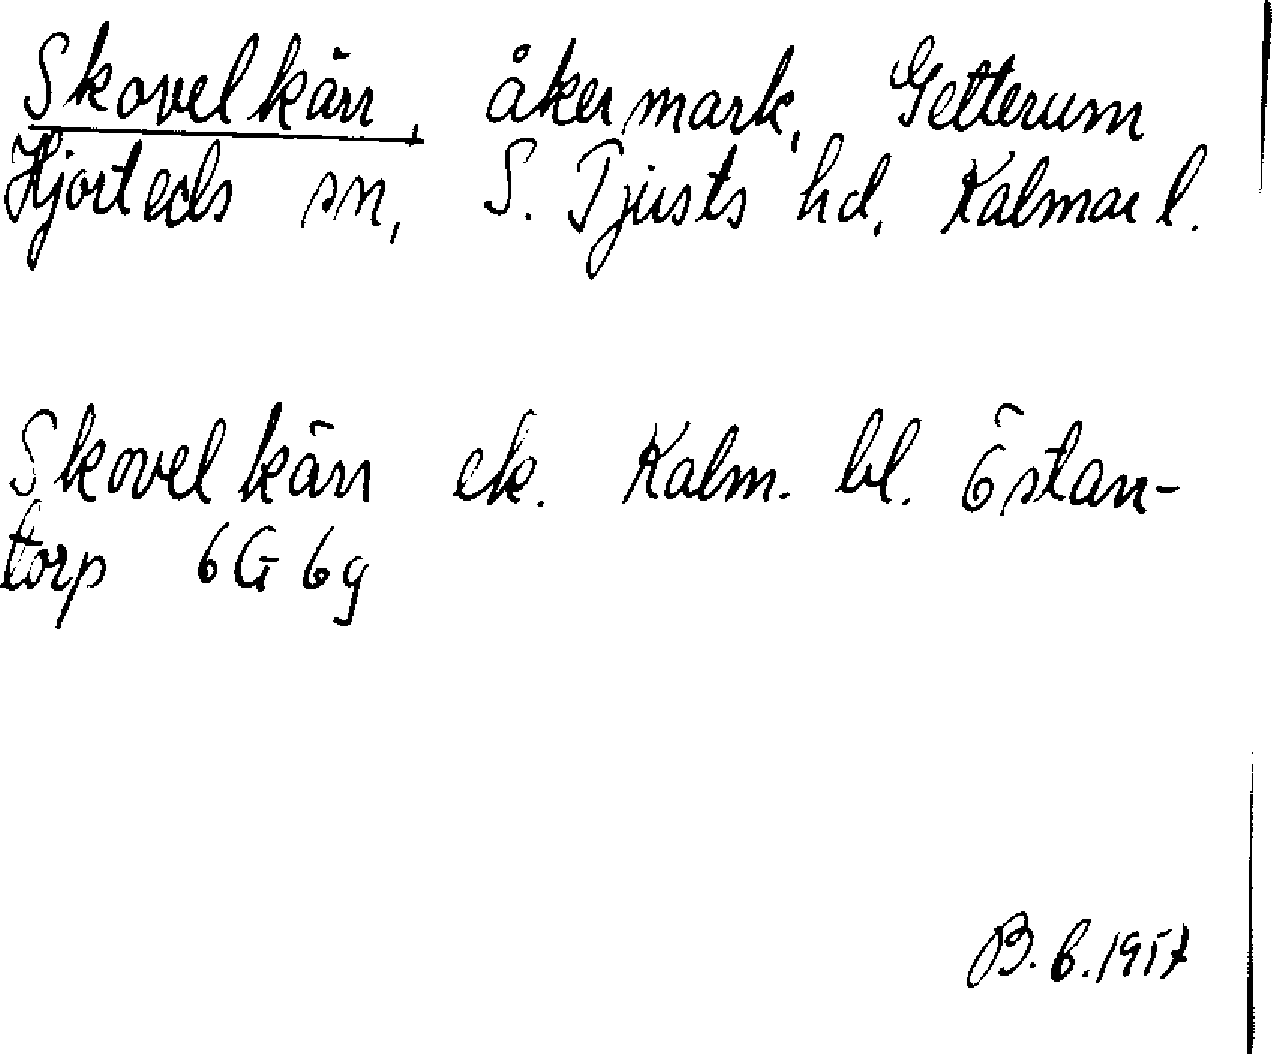 Skovelkärr, åkermark, Getterum
Hjorteds sn, S. Tjusts hd, Kalmar l.
Skovelkärr ek. Kalm. bl. Östan-
torp 6G 6g
B. b. 1957